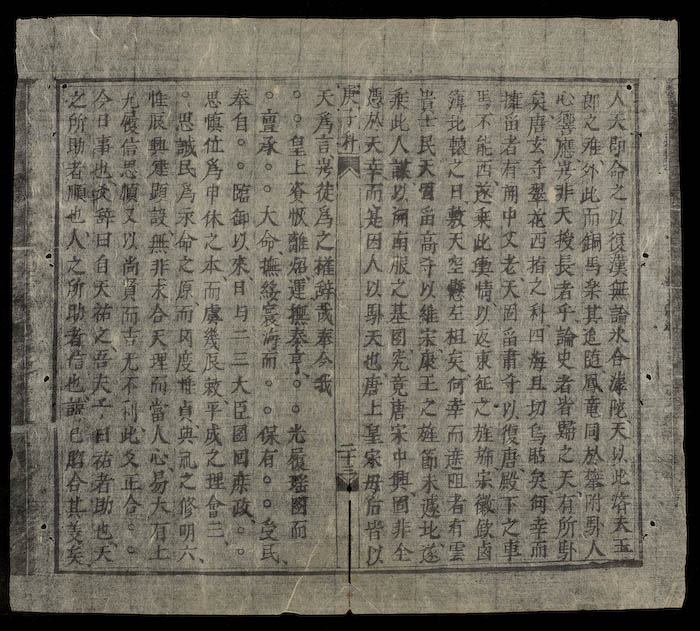 人天即命之以復漢無論氷合滹沱天以此啓天王
郎之难外此而銅馬樂其追随鳳竜同於攀附馭人
心響應豈非天授長者乎論史者皆歸之天有所馭
矣唐玄宗翠花西指之科四海且切烏貼矣何幸而
擁留者有関中父老天固留肅宗以復唐殿下之車
馬不能西遂乘此輿情以返東征之旌旆宋徽欽鹵
簿北轅之日敷天空悲左袒矣何幸而遮阻者有雲
貴士民天實留高宗以維宋康王之旌節未遽北遂
乘此人謀以何南服之基圖究竟唐宋中興國非全
憑於天幸而足因人以馭天也唐上皇宋母后皆以
天爲言豈徒爲之權辞哉奉今我
庚子科
二十三
。。皇上資恢離炤運撫泰亨。。光履瑶圖而
。亶承。。大命撫綏寰海而。。保有。。受民
奉自。。臨御以來日与二三大臣國回庶政。。
思慎位爲申休之本而虞幾辰敕平成之理會三
。思誠民爲永命之原而罔度惟貞典礼之修明六
惟辰興建題設無非求合天理而當人心易大有上
九履信思順又以尚賢而吉无不利此又正合。。
今日事也彼辞曰自天祐之吾夫子曰祐者助也天
之所助者順也人之所助者信也誠已脗合其美矣